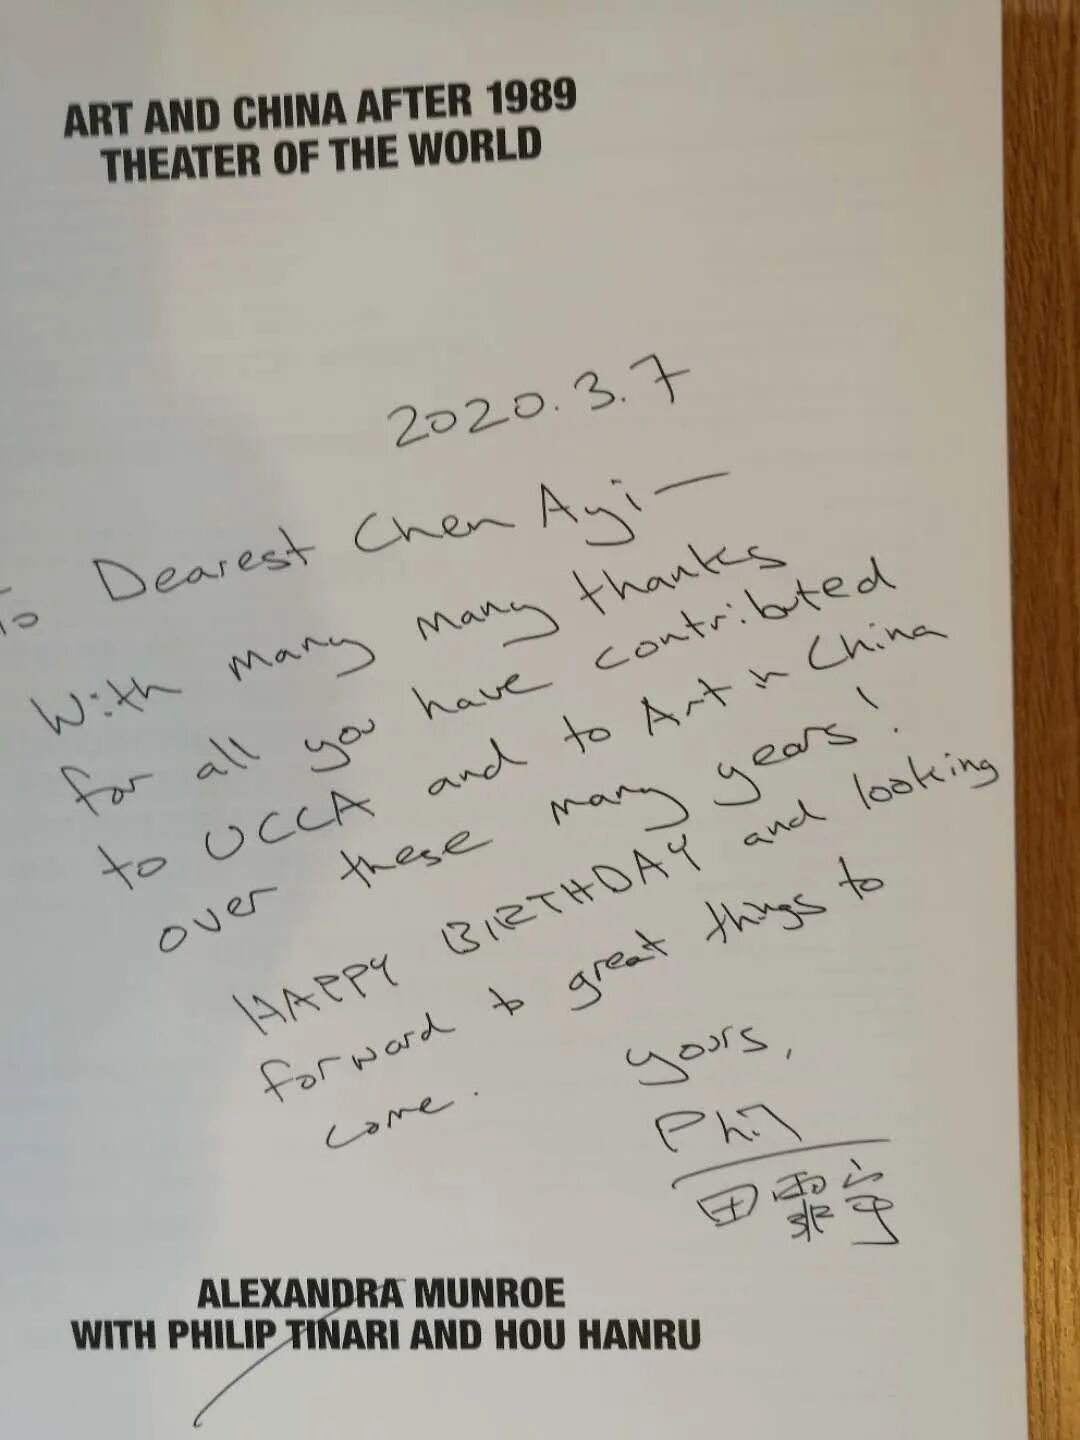 ART AND CHINA AFTER 1989
THEATER OF THE WORLD
2020.3.7
To Dearest Chen Ayi—
With many many thanks
for all you have contributed
to UCCA and to Art in China
over these many years!
HAPPY BIRTHDAY and looking
forward to great things to
come.
yours,
Phil
田霏宇
ALEXANDRA MUNROE
WITH PHILIP TINARI AND HOU HANRU